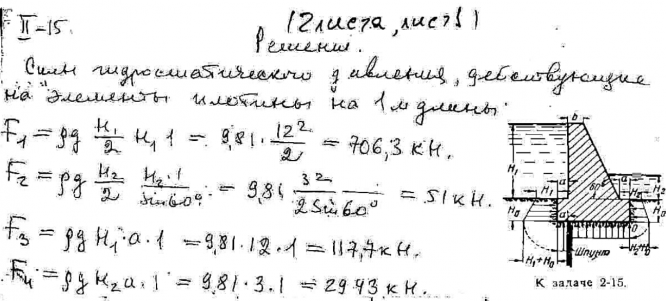 II-15. (2 листа, лист 1)
Решение.
Силы гидростатического давления, действующие
на элементы плотины на 1 м длины:
F₁ = ρg H₁/2 H₁ 1 = 9,81 · 12²/2 = 706,3 кН.
F₂ = ρg H₂/2 H₂·1/sin60° = 9,81 3²/2sin60° = 51 кН.
F₃ = ρg H₁·a·1 = 9,81·12·1 = 117,7 кН.
F₄ = ρg H₂ a·1 = 9,81·3·1 = 29,43 кН.
b
H₁
H₁ a a H₂ H₂
60°
H₀ H₀
a O
Шпунт
H₁+H₀ H₂+H₀
К задаче 2-15.